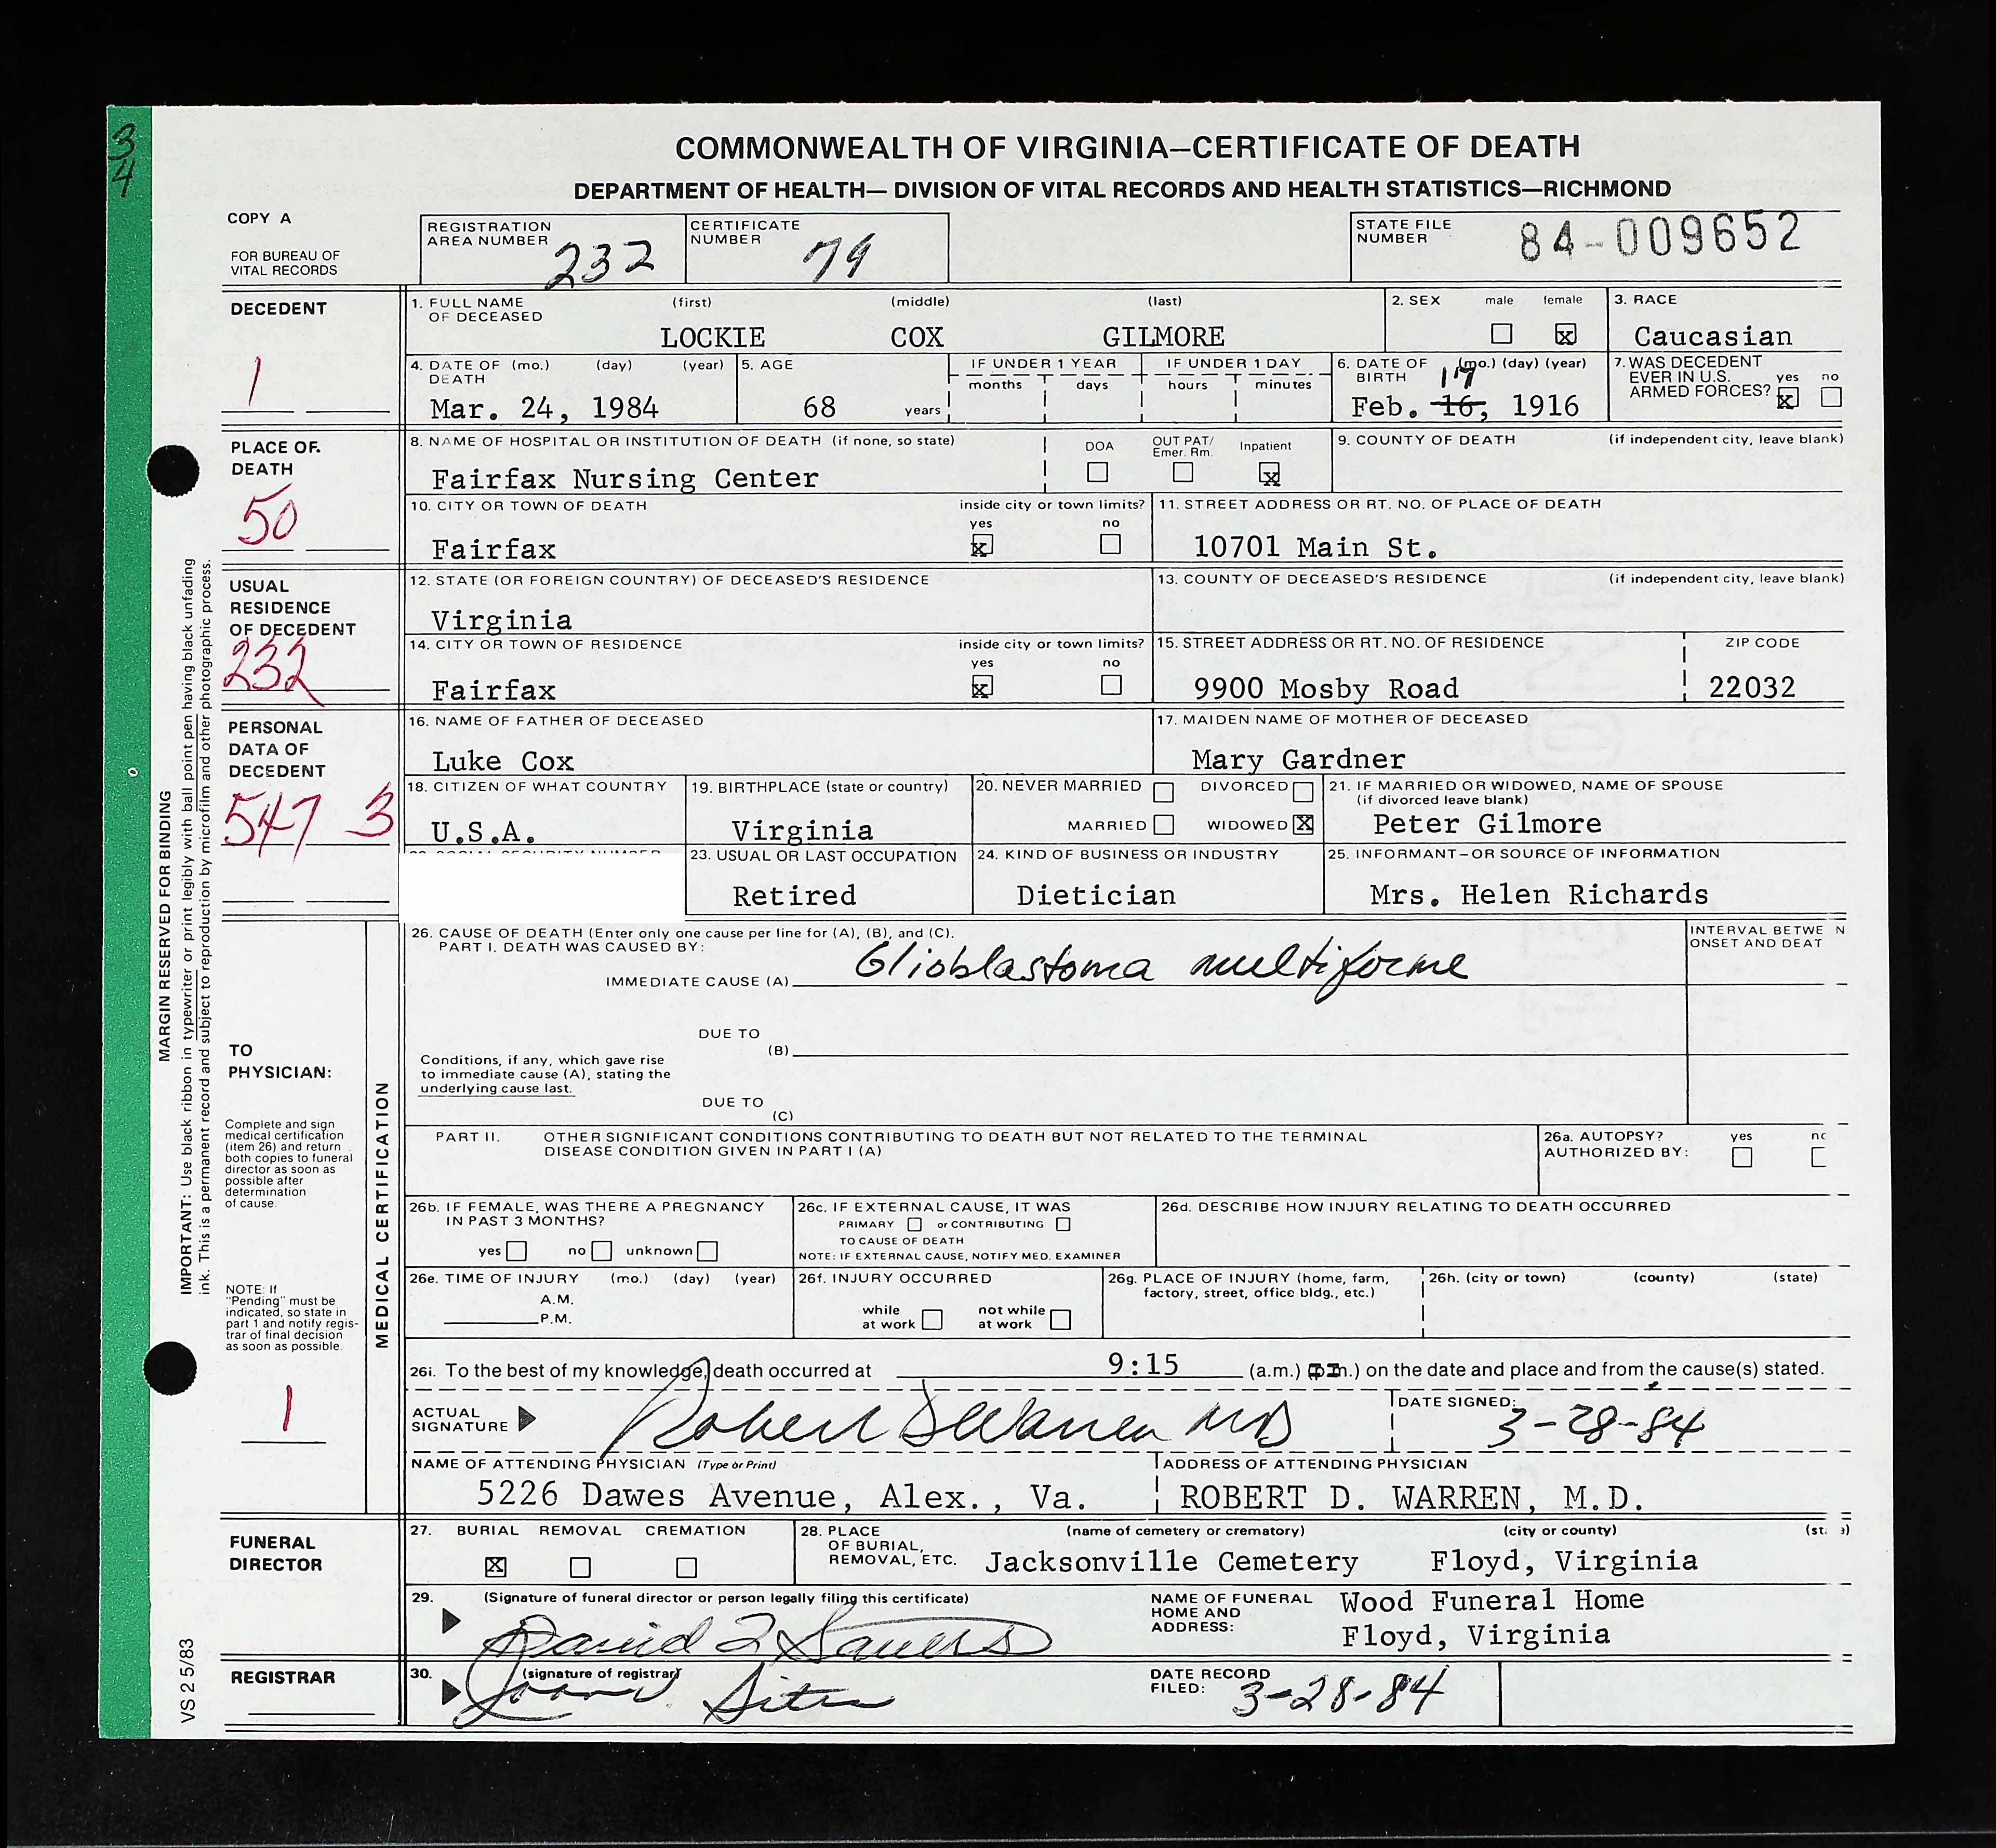 3
4
COMMONWEALTH OF VIRGINIA—CERTIFICATE OF DEATH
DEPARTMENT OF HEALTH— DIVISION OF VITAL RECORDS AND HEALTH STATISTICS—RICHMOND
COPY A
FOR BUREAU OF
VITAL RECORDS
REGISTRATION
AREA NUMBER 232
CERTIFICATE
NUMBER 79
STATE FILE
NUMBER 84-009652
DECEDENT
1
1. FULL NAME (first) (middle) (last)
OF DECEASED
LOCKIE COX GILMORE
2. SEX male female
x
3. RACE
Caucasian
4. DATE OF (mo.) (day) (year)
DEATH
Mar. 24, 1984
5. AGE
68 years
IF UNDER 1 YEAR
months days
IF UNDER 1 DAY
hours minutes
6. DATE OF (mo.) (day) (year)
BIRTH 17
Feb. 16, 1916
7. WAS DECEDENT
EVER IN U.S. yes no
ARMED FORCES? x
PLACE OF
DEATH
50
8. NAME OF HOSPITAL OR INSTITUTION OF DEATH (if none, so state)
Fairfax Nursing Center
DOA OUT PAT/ Inpatient
Emer. Rm.
x
9. COUNTY OF DEATH (if independent city, leave blank)
10. CITY OR TOWN OF DEATH inside city or town limits?
yes no
Fairfax x
11. STREET ADDRESS OR RT. NO. OF PLACE OF DEATH
10701 Main St.
USUAL
RESIDENCE
OF DECEDENT
232
12. STATE (OR FOREIGN COUNTRY) OF DECEASED'S RESIDENCE
Virginia
13. COUNTY OF DECEASED'S RESIDENCE (if independent city, leave blank)
14. CITY OR TOWN OF RESIDENCE inside city or town limits?
yes no
Fairfax x
15. STREET ADDRESS OR RT. NO. OF RESIDENCE ZIP CODE
9900 Mosby Road 22032
PERSONAL
DATA OF
DECEDENT
547 3
16. NAME OF FATHER OF DECEASED
Luke Cox
17. MAIDEN NAME OF MOTHER OF DECEASED
Mary Gardner
18. CITIZEN OF WHAT COUNTRY
U.S.A.
19. BIRTHPLACE (state or country)
Virginia
20. NEVER MARRIED DIVORCED
MARRIED WIDOWED X
21. IF MARRIED OR WIDOWED, NAME OF SPOUSE
(if divorced leave blank)
Peter Gilmore
23. USUAL OR LAST OCCUPATION
Retired
24. KIND OF BUSINESS OR INDUSTRY
Dietician
25. INFORMANT—OR SOURCE OF INFORMATION
Mrs. Helen Richards
MARGIN RESERVED FOR BINDING
IMPORTANT: Use black ribbon in typewriter or print legibly with ball point pen having black unfading
ink. This is a permanent record and subject to reproduction by microfilm and other photographic process.
VS 2 5/83
TO
PHYSICIAN:
Complete and sign
medical certification
(item 26) and return
both copies to funeral
director as soon as
possible after
determination
of cause.
NOTE: If
"Pending" must be
indicated, so state in
part 1 and notify regis-
trar of final decision
as soon as possible.
1
MEDICAL CERTIFICATION
26. CAUSE OF DEATH (Enter only one cause per line for (A), (B), and (C).
PART I. DEATH WAS CAUSED BY:
IMMEDIATE CAUSE (A) Glioblastoma multiforme
INTERVAL BETWE N
ONSET AND DEAT
DUE TO
(B)
Conditions, if any, which gave rise
to immediate cause (A), stating the
underlying cause last.
DUE TO
(C)
PART II. OTHER SIGNIFICANT CONDITIONS CONTRIBUTING TO DEATH BUT NOT RELATED TO THE TERMINAL
DISEASE CONDITION GIVEN IN PART I (A)
26a. AUTOPSY? yes
AUTHORIZED BY:
26b. IF FEMALE, WAS THERE A PREGNANCY
IN PAST 3 MONTHS?
yes no unknown
26c. IF EXTERNAL CAUSE, IT WAS
PRIMARY or CONTRIBUTING
TO CAUSE OF DEATH
NOTE: IF EXTERNAL CAUSE, NOTIFY MED. EXAMINER
26d. DESCRIBE HOW INJURY RELATING TO DEATH OCCURRED
26e. TIME OF INJURY (mo.) (day) (year)
A.M.
P.M.
26f. INJURY OCCURRED
while not while
at work at work
26g. PLACE OF INJURY (home, farm,
factory, street, office bldg., etc.)
26h. (city or town) (county) (state)
26i. To the best of my knowledge, death occurred at 9:15 (a.m.) (p.m.) on the date and place and from the cause(s) stated.
ACTUAL
SIGNATURE Robert D Warren MD
DATE SIGNED:
3-28-84
NAME OF ATTENDING PHYSICIAN (Type or Print)
5226 Dawes Avenue, Alex., Va.
ADDRESS OF ATTENDING PHYSICIAN
ROBERT D. WARREN, M.D.
FUNERAL
DIRECTOR
27. BURIAL REMOVAL CREMATION
X
28. PLACE (name of cemetery or crematory) (city or county)
OF BURIAL,
REMOVAL, ETC. Jacksonville Cemetery Floyd, Virginia
29. (Signature of funeral director or person legally filing this certificate)
David
NAME OF FUNERAL
HOME AND
ADDRESS:
Wood Funeral Home
Floyd, Virginia
REGISTRAR
30. (signature of registrar)
DATE RECORD
FILED: 3-28-84